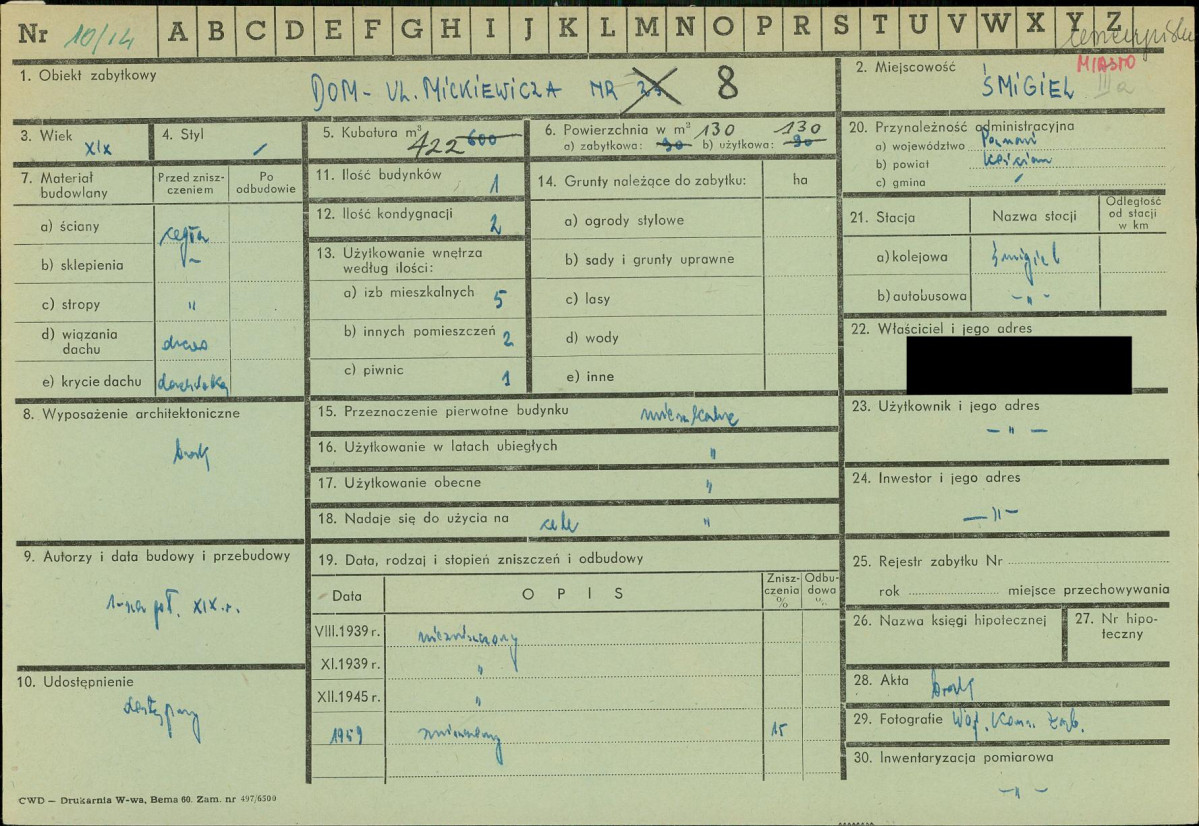 Nr 10/14 A B C D E F G H I J K L M N O P R S T U V W X Y Z
1. Obiekt zabytkowy
DOM - UL. MICKIEWICZA NR 8
2. Miejscowość MIASTO
ŚMIGIEL IIIa
3. Wiek
XIX
4. Styl
5. Kubatura m³
422 600
6. Powierzchnia w m² 130 130
a) zabytkowa: 90 b) użytkowa: 90
20. Przynależność administracyjna
a) województwo Poznań
b) powiat Kościan
c) gmina
7. Materiał budowlany
Przed zniszczeniem
Po odbudowie
a) ściany cegła
b) sklepienia -
c) stropy "
d) wiązania dachu drewno
e) krycie dachu dachówka
11. Ilość budynków 1
12. Ilość kondygnacji 2
13. Użytkowanie wnętrza według ilości:
a) izb mieszkalnych 5
b) innych pomieszczeń 2
c) piwnic 1
14. Grunty należące do zabytku: ha
a) ogrody stylowe
b) sady i grunty uprawne
c) lasy
d) wody
e) inne
21. Stacja
Nazwa stacji
Odległość od stacji w km
a) kolejowa Śmigiel
b) autobusowa - " -
22. Właściciel i jego adres
8. Wyposażenie architektoniczne
brak
15. Przeznaczenie pierwotne budynku mieszkalne
16. Użytkowanie w latach ubiegłych "
17. Użytkowanie obecne "
18. Nadaje się do użycia na cele "
23. Użytkownik i jego adres
- " -
24. Inwestor i jego adres
- " -
9. Autorzy i data budowy i przebudowy
1-sza poł. XIX w.
19. Data, rodzaj i stopień zniszczeń i odbudowy
Data
OPIS
Zniszczenia %
Odbudowa %
VIII.1939 r. niezniszczony
XI.1939 r. "
XII.1945 r. "
1959 zniszczony 15
25. Rejestr zabytku Nr
rok miejsce przechowywania
26. Nazwa księgi hipotecznej
27. Nr hipoteczny
10. Udostępnienie
dostępny
28. Akta brak
29. Fotografie Woj. Kons. Zab.
30. Inwentaryzacja pomiarowa
- " -
CWD — Drukarnia W-wa, Bema 60. Zam. nr 497/6500